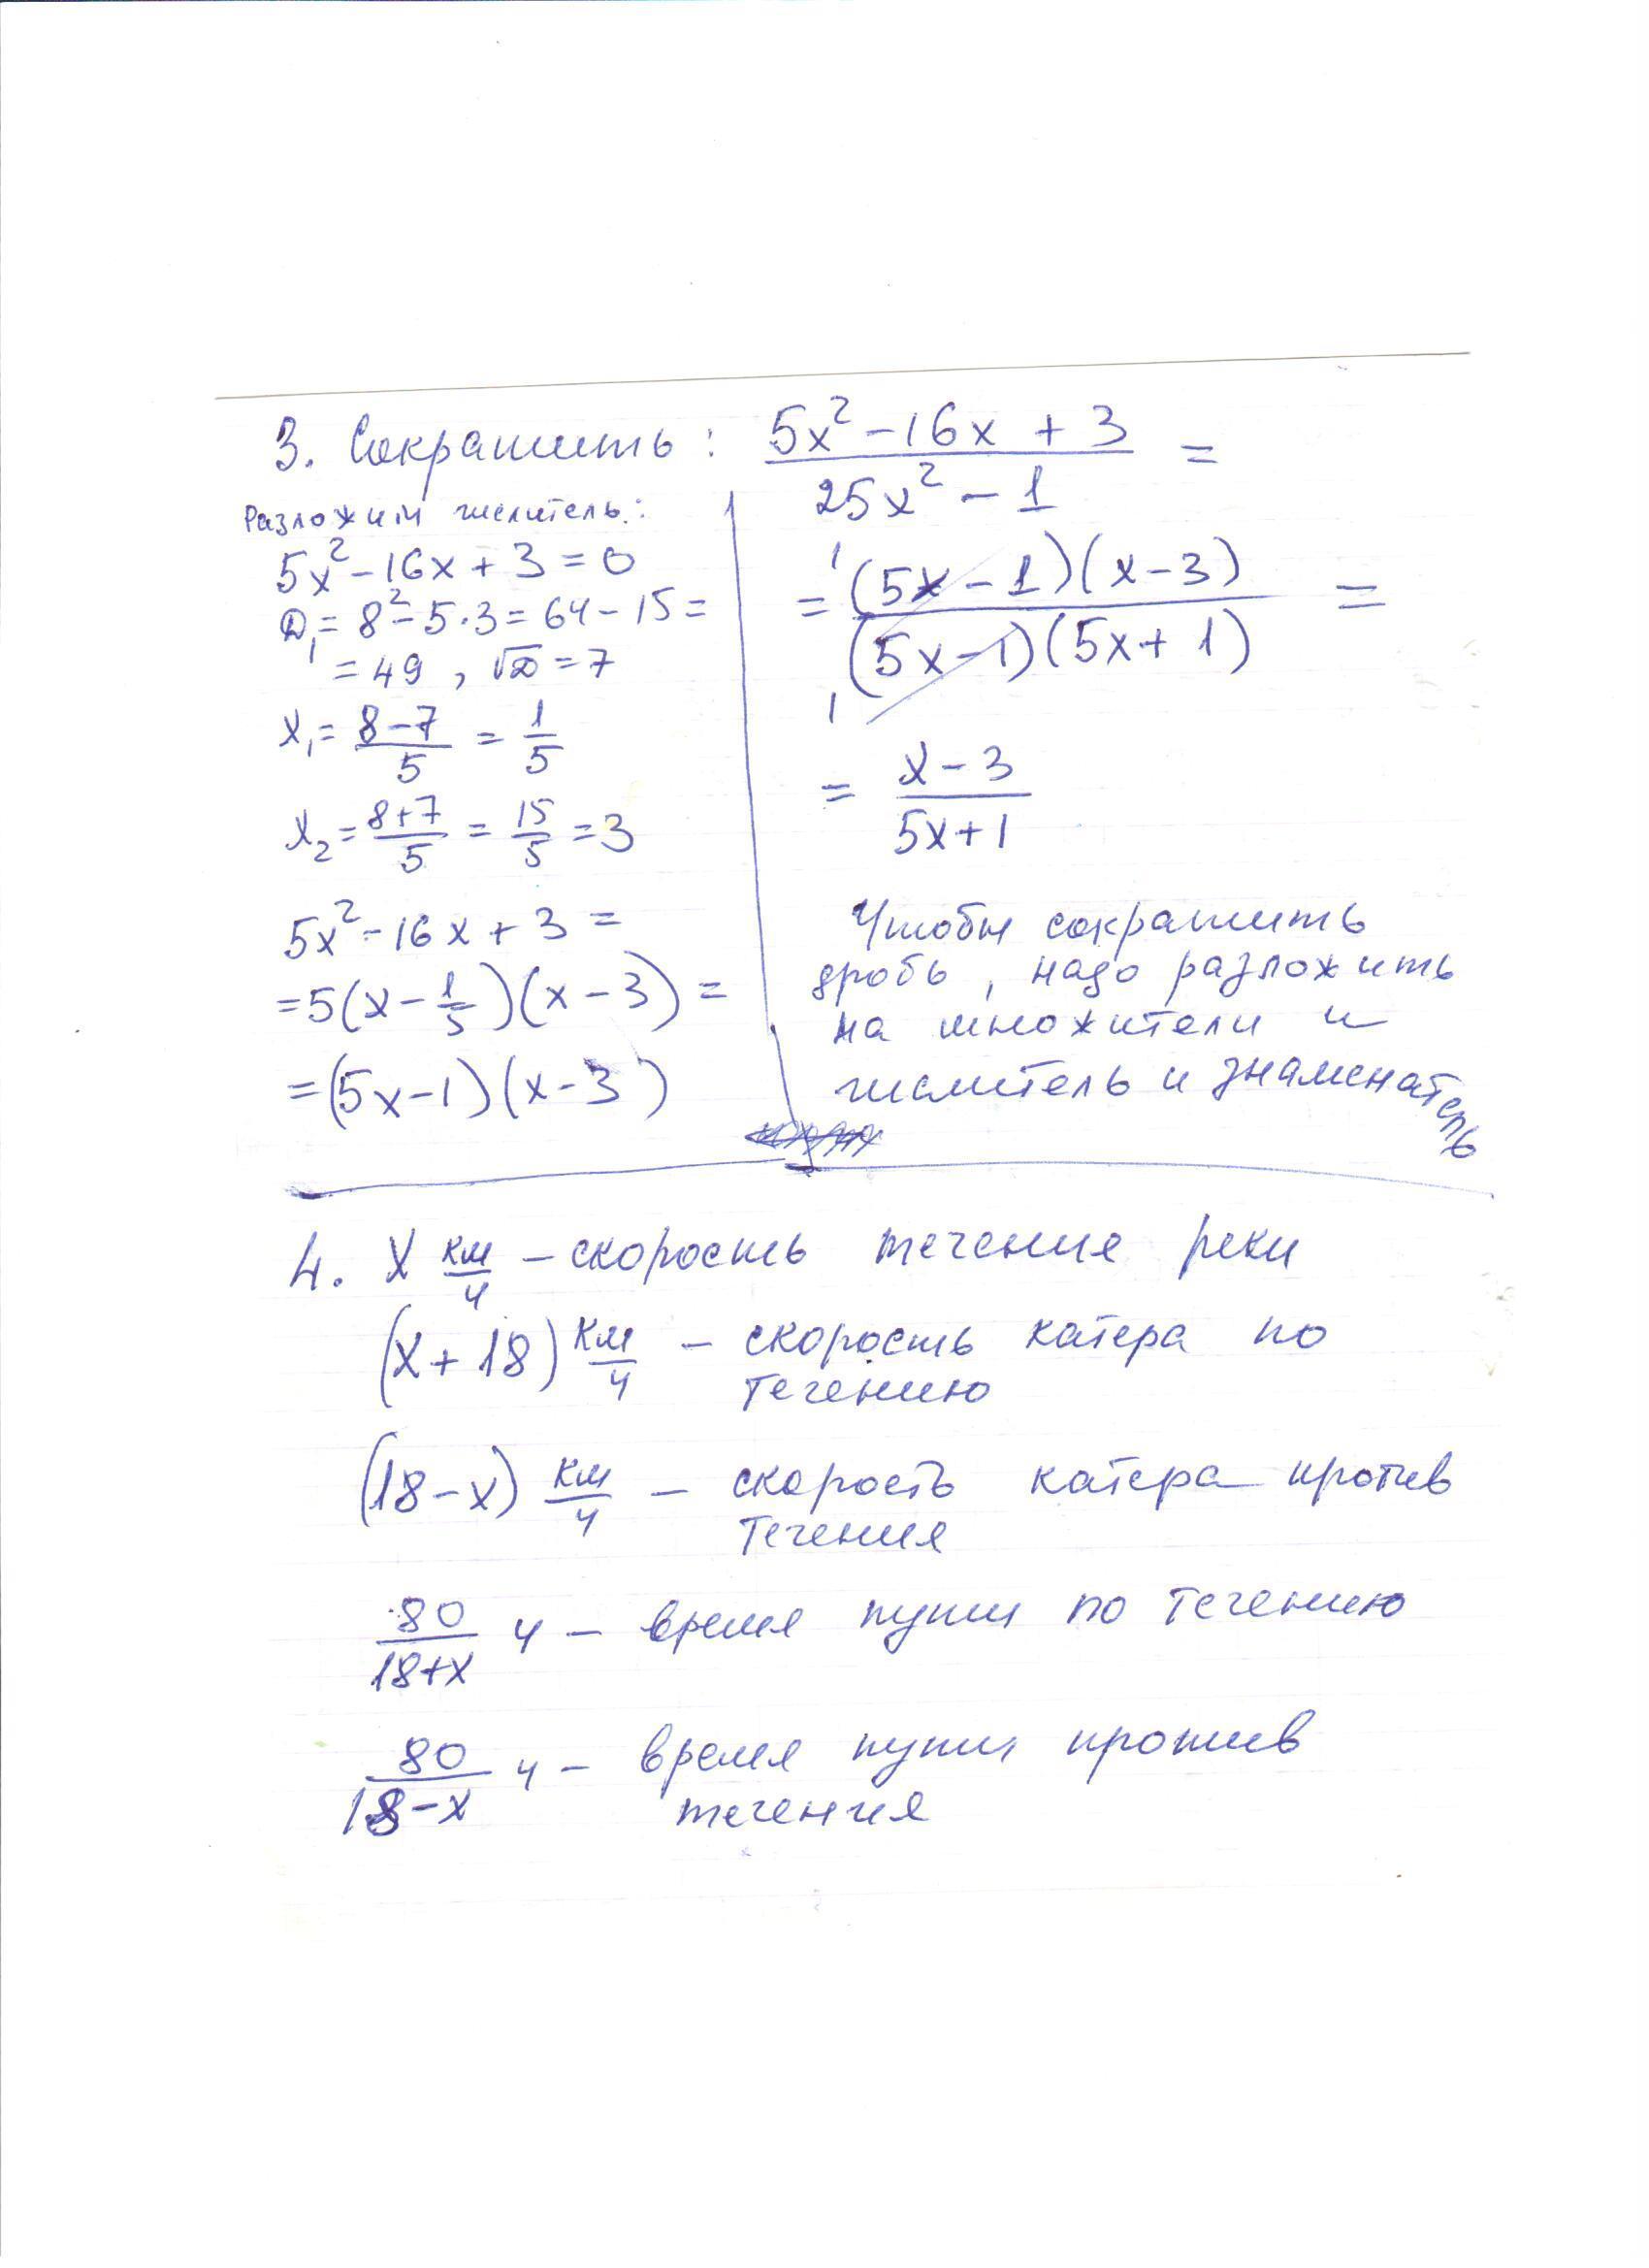 3. Сократить: (5x² - 16x + 3)/(25x² - 1) =
Разложим числитель:
5x² - 16x + 3 = 0
D₁ = 8² - 5·3 = 64 - 15 =
= 49, √D = 7
x₁ = (8-7)/5 = 1/5
x₂ = (8+7)/5 = 15/5 = 3
5x² - 16x + 3 =
= 5(x - 1/5)(x - 3) =
= (5x-1)(x-3)
= (5x - 1)(x - 3)/((5x - 1)(5x + 1)) =
= (x - 3)/(5x+1)
Чтобы сократить
дробь, надо разложить
на множители и
числитель и знаменатель
4. x км/ч - скорость течения реки
(x + 18) км/ч - скорость катера по
течению
(18 - x) км/ч - скорость катера против
течения
80/(18+x) ч - время пути по течению
80/(18-x) ч - время пути против
течения